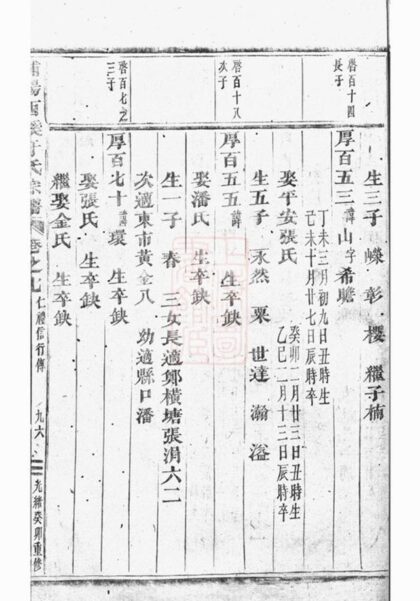 生三子 嶸 彰 櫻 繼子楠
啓百十四
長子
厚百五三 諱山字希瞻
丁未三月初九日丑時生
己未十月廿七日辰時卒
娶平安張氏
癸卯二月廿三日丑時生
乙巳二月十三日辰時卒
生五子 永然 粟 世達 瀚 溢
啓百十八
次子
厚百五五 諱 生卒缺
娶潘氏 生卒缺
生一子 春 三女長適鄭橫塘張涓六二
次適東市黃金八 幼適縣口潘
啓百七之
三子
厚百七十 諱環 生卒缺
娶張氏 生卒缺
繼娶金氏 生卒缺
氏宗譜 卷之九 仁禮信行傳 九六 光緒癸卯重修